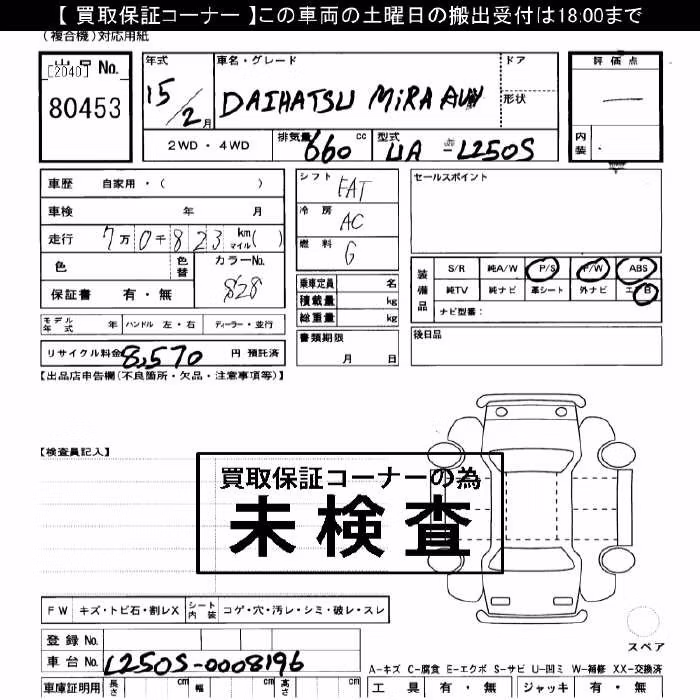 【 買取保証コーナー 】この車両の土曜日の搬出受付は18:00まで
(複合機)対応用紙
出品 No. [2040] 80453
年式 15/2月
車名・グレード DAIHATSU MiRA
ドア
形状
評価点 —
内装
2WD・4WD
排気量 660 cc
型式 UA-L250S
車歴 自家用・( )
シフト FAT
セールスポイント
車検 年 月
冷房 AC
走行 7万0千823 km マイル( )
燃料 G
色
色替
カラーNo. 828
保証書 有・無
乗車定員 名
積載量 kg
総重量 kg
装備品
S/R 純A/W P/S P/W ABS
純TV 純ナビ 革シート 外ナビ エアB
ナビ型番:
モデル年式 年 ハンドル 左・右 ディーラー・並行
書類期限 月 日
後日品
リサイクル料金 8,570 円 預託済
【出品店申告欄(不良箇所・欠品・注意事項等)】
【検査員記入】
買取保証コーナーの為
未検査
FW キズ・トビ石・割レX シート内装 コゲ・穴・汚レ・シミ・破レ・スレ
スペア
登録 No.
車台 No. L250S-0008196
A-キズ C-腐食 E-エクボ S-サビ U-凹ミ W-補修 XX-交換済
車庫証明用 長さ cm 幅 cm 高さ cm
工具 有・無 ジャッキ 有・無